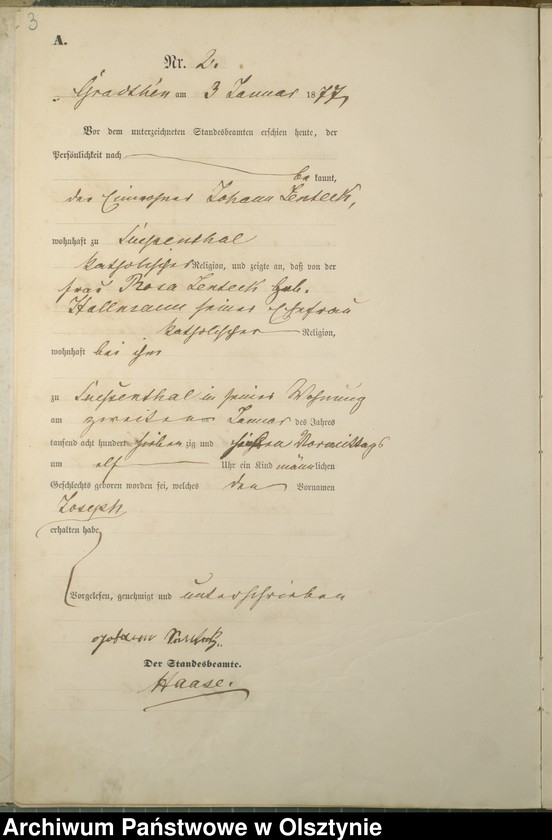 3
A.
Nr. 2.
Gradthen am 3 Januar 1877
Vor dem unterzeichneten Standesbeamten erschien heute, der
Persönlichkeit nach
be kannt,
der Einwohner Johann Lenteck,
wohnhaft zu
katholischer Religion, und zeigte an, daß von der
Frau Rosa Lenteck geb.
Hallmann seiner Ehefrau
katholischer Religion,
wohnhaft bei ihm
zu in seiner Wohnung
am zweiten Januar des Jahres
tausend acht hundert sieben zig und sieben Vormittags
um elf Uhr ein Kind männlichen
Geschlechts geboren worden sei, welches den Vornamen
Joseph
erhalten habe
Vorgelesen, genehmigt und unterschrieben
Johann
Der Standesbeamte.
Haase.
Archiwum Państwowe w Olsztynie